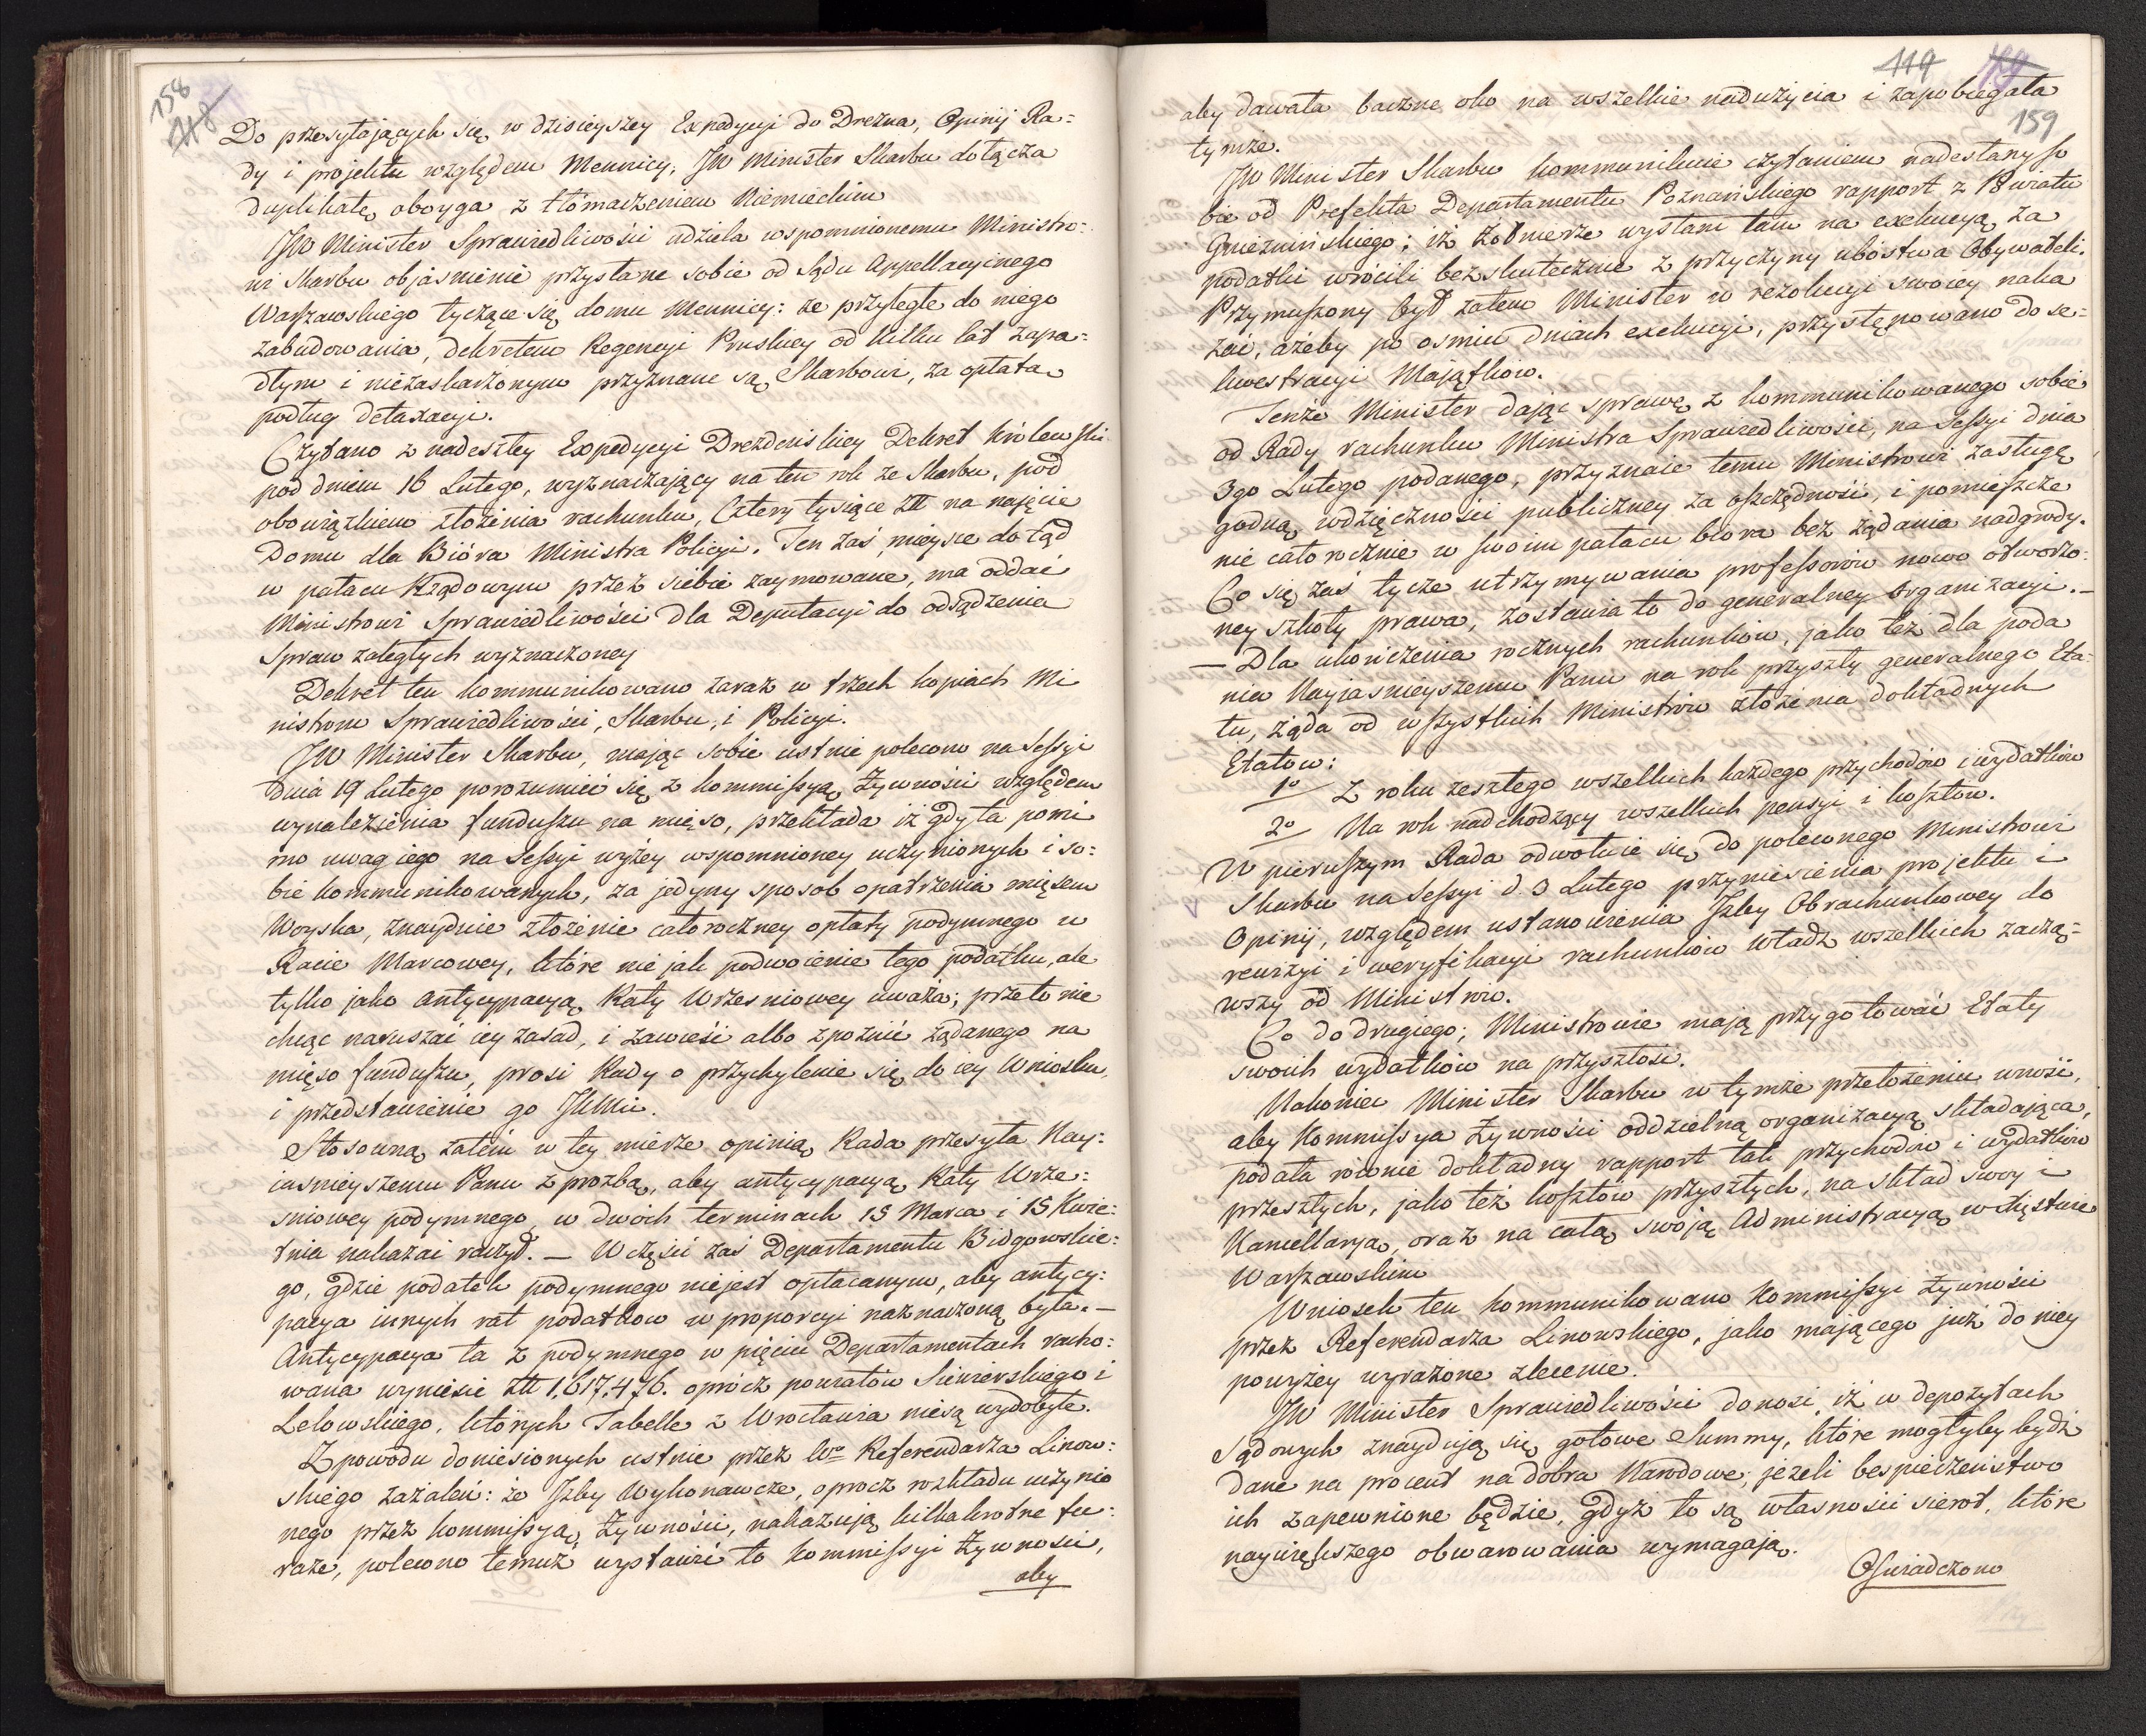 158
118
Do przesyłaiących się w dzisieyszey Expedycyi do Drezna, Opinij Ra=
dy i projektu względem Mennicy, JW Minister Skarbu dołącza
duplikatę oboyga z tłómaczeniem Niemieckim
JW Minister Sprawiedliwości udziela wspomnionemu Ministro=
wi Skarbu objaśnienie przysłane sobie od Sądu Appellacyinego
Warszawskiego tyczące się domu Mennicy: że przyległe do niego
zabudowania, dekretem Regencyi Pruskiey od kilku lat zapa=
dłym i niezaskarżonym przyznane są Skarbowi, za opłatą
podług detaxacyi.
Czytano z nadeszłey Expedycyi Drezdeńskiey Dekret Królewski
pod dniem 16 Lutego, wyznaczaiący na ten rok ze Skarbu, pod
obowiązkiem złożenia rachunku, Cztery tysiące Złł na naięcie
Domu dla Bióra Ministra Policyi. Ten zaś mieysce dotąd
w pałacu Rządowym przez siebie zaymowane, ma oddać
Ministrowi Sprawiedliwości dla Deputacyi do odsądzenia
Spraw zaległych wyznaczoney
Dekret ten kommunikowano zaraz w trzech kopiach Mi
nistrom Sprawiedliwości, Skarbu, i Policyi.
JW Minister Skarbu, mając sobie ustnie polecono na Sessyi
dnia 19 Lutego porozumieć się z kommissyą Żywności względem
wynalezienia funduszu na mięso, przekłada iż gdy ta pomi
mo uwag iego na Sessyi wyżey wspomnioney uczynionych i so=
bie kommunikowanych, za jedyny sposob opatrzenia mięsem
Woyska, znayduie złożenie całoroczney opłaty podymnego w
Racie Marcowey, które nie jak podwoienie tego podatku, ale
tylko jako antycypacyą Raty Wrzesniowey uważa; przeto nie
chcąc naruszać iey zasad, i zawieść albo zpoźnić żądanego na
mięso funduszu, prosi Rady o przychylenie się do iey Wniosku,
i przedstawienie go JKMci.
Stosowną zatém w tey mierze opinią Rada przesyła Nay=
iasnieyszemu Panu z prozbą, aby antycypacyą Raty Wrze=
sniowey podymnego, w dwóch terminach 15 Marca i 15 Kwie=
tnia nakazać raczył. — W części zaś Departamentu Bidgoskie=
go, gdzie podatek podymnego niejest opłacanym, aby antycy=
pacya innych rat podatkow w proporcyi naznaczoną była. —
Antycypacya ta z podymnego w pięciu Departamentach racho=
wana wyniesie Złł 1,617,476. oprócz powiatów Siewierskiego i
Lelowskiego, których Tabelle z Wrocławia niesą wydobyte.
Z powodu doniesionych ustnie przez Wo Referendarza Linow=
skiego zażaleń: że Izby Wykonawcze, oprocz rozkładu uczynio
nego przez kommissyą Żywności, nakazują kilkakrotne fu=
raże, polecono temuż wystawić to Kommissyi Żywnosci,
aby
119
159
aby dawała baczne oko na wszelkie nadużycia i zapobiegała
tymże.
JW Minister Skarbu kommunikuie czytaniem nadesłany so
bie od Prefekta Departamentu Poznańskiego rapport z Powiatu
Gnieźnińskiego; iż żołnierze wysłani tam na exekucyą za
podatki wrócili bezskutecznie z przyczyny ubóstwa Obywateli.
Przymuszony był zatem Minister w rezolucyi swoiey naka
zać, ażeby po osmiu dniach exekucyi, przystępowano do se=
kwestracyi Majątków.
Tenże Minister dając sprawę z kommunikowanego sobie
od Rady rachunku Ministra Sprawiedliwości, na Sessyi dnia
3go Lutego podanego, przyznaie temu Ministrowi zasługę
godną wdzięczności publiczney za oszczędność, i pomieszcze
nie całorocznie w swoim pałacu biora bez żądania nadgrody.
Co się zaś tycze utrzymywania professorów nowo otworzo=
ney szkoły prawa, zostawia to do generalney Organizacyi. —
— Dla ukończenia rocznych rachunków, jako też dla poda
nia Nayjasnieyszemu Panu na rok przyszły generalnego Eta=
tu, żąda od wszystkich Ministrów złożenia dokładnych
Etatow:
1o Z roku zeszłego wszelkich każdego przychodów i wydatków
2o Na rok nadchodzący wszelkich pensyi i kosztow.
W pierwszym Rada odwołuie się do poleconego Ministrowi
Skarbu na Sessyi d. 3 Lutego przyniesienia projektu i
Opinij, względem ustanowienia Izby Obrachunkowey do
rewizyi i weryfikacyi rachunków władz wszelkich zaczą=
wszy od Ministrów.
Co do drugiego; Ministrowie mają przygotować Etaty
swoich wydatków na przyszłość.
Nakoniec Minister Skarbu w tymże przełożeniu wnosi,
aby Kommissya Żywności oddzielną organizacyą składaiąca,
podała równie dokładny rapport tak przychodów i wydatków
przeszłych, jako też kosztów przyszłych, na skład swoy i
Kancellaryą, oraz na całą swoją Administracyą w Xięstwie
Warszawskim
Wniosek ten kommunikowano Kommissyi Żywności
przez Referendarza Linowskiego, jako mającego już do niey
powyżey wyrażone zlecenie.
JW Minister Sprawiedliwości donosi, iż w depozytach
Sądowych znayduią się gotowe Summy, które mogłyby bydź
dane na procent na dobra Narodowe; jeżeli bespieczeństwo
ich zapewnione będzie, gdyż to są własności sierot, które
naywiększego obwarowania wymagają.
Oświadczono